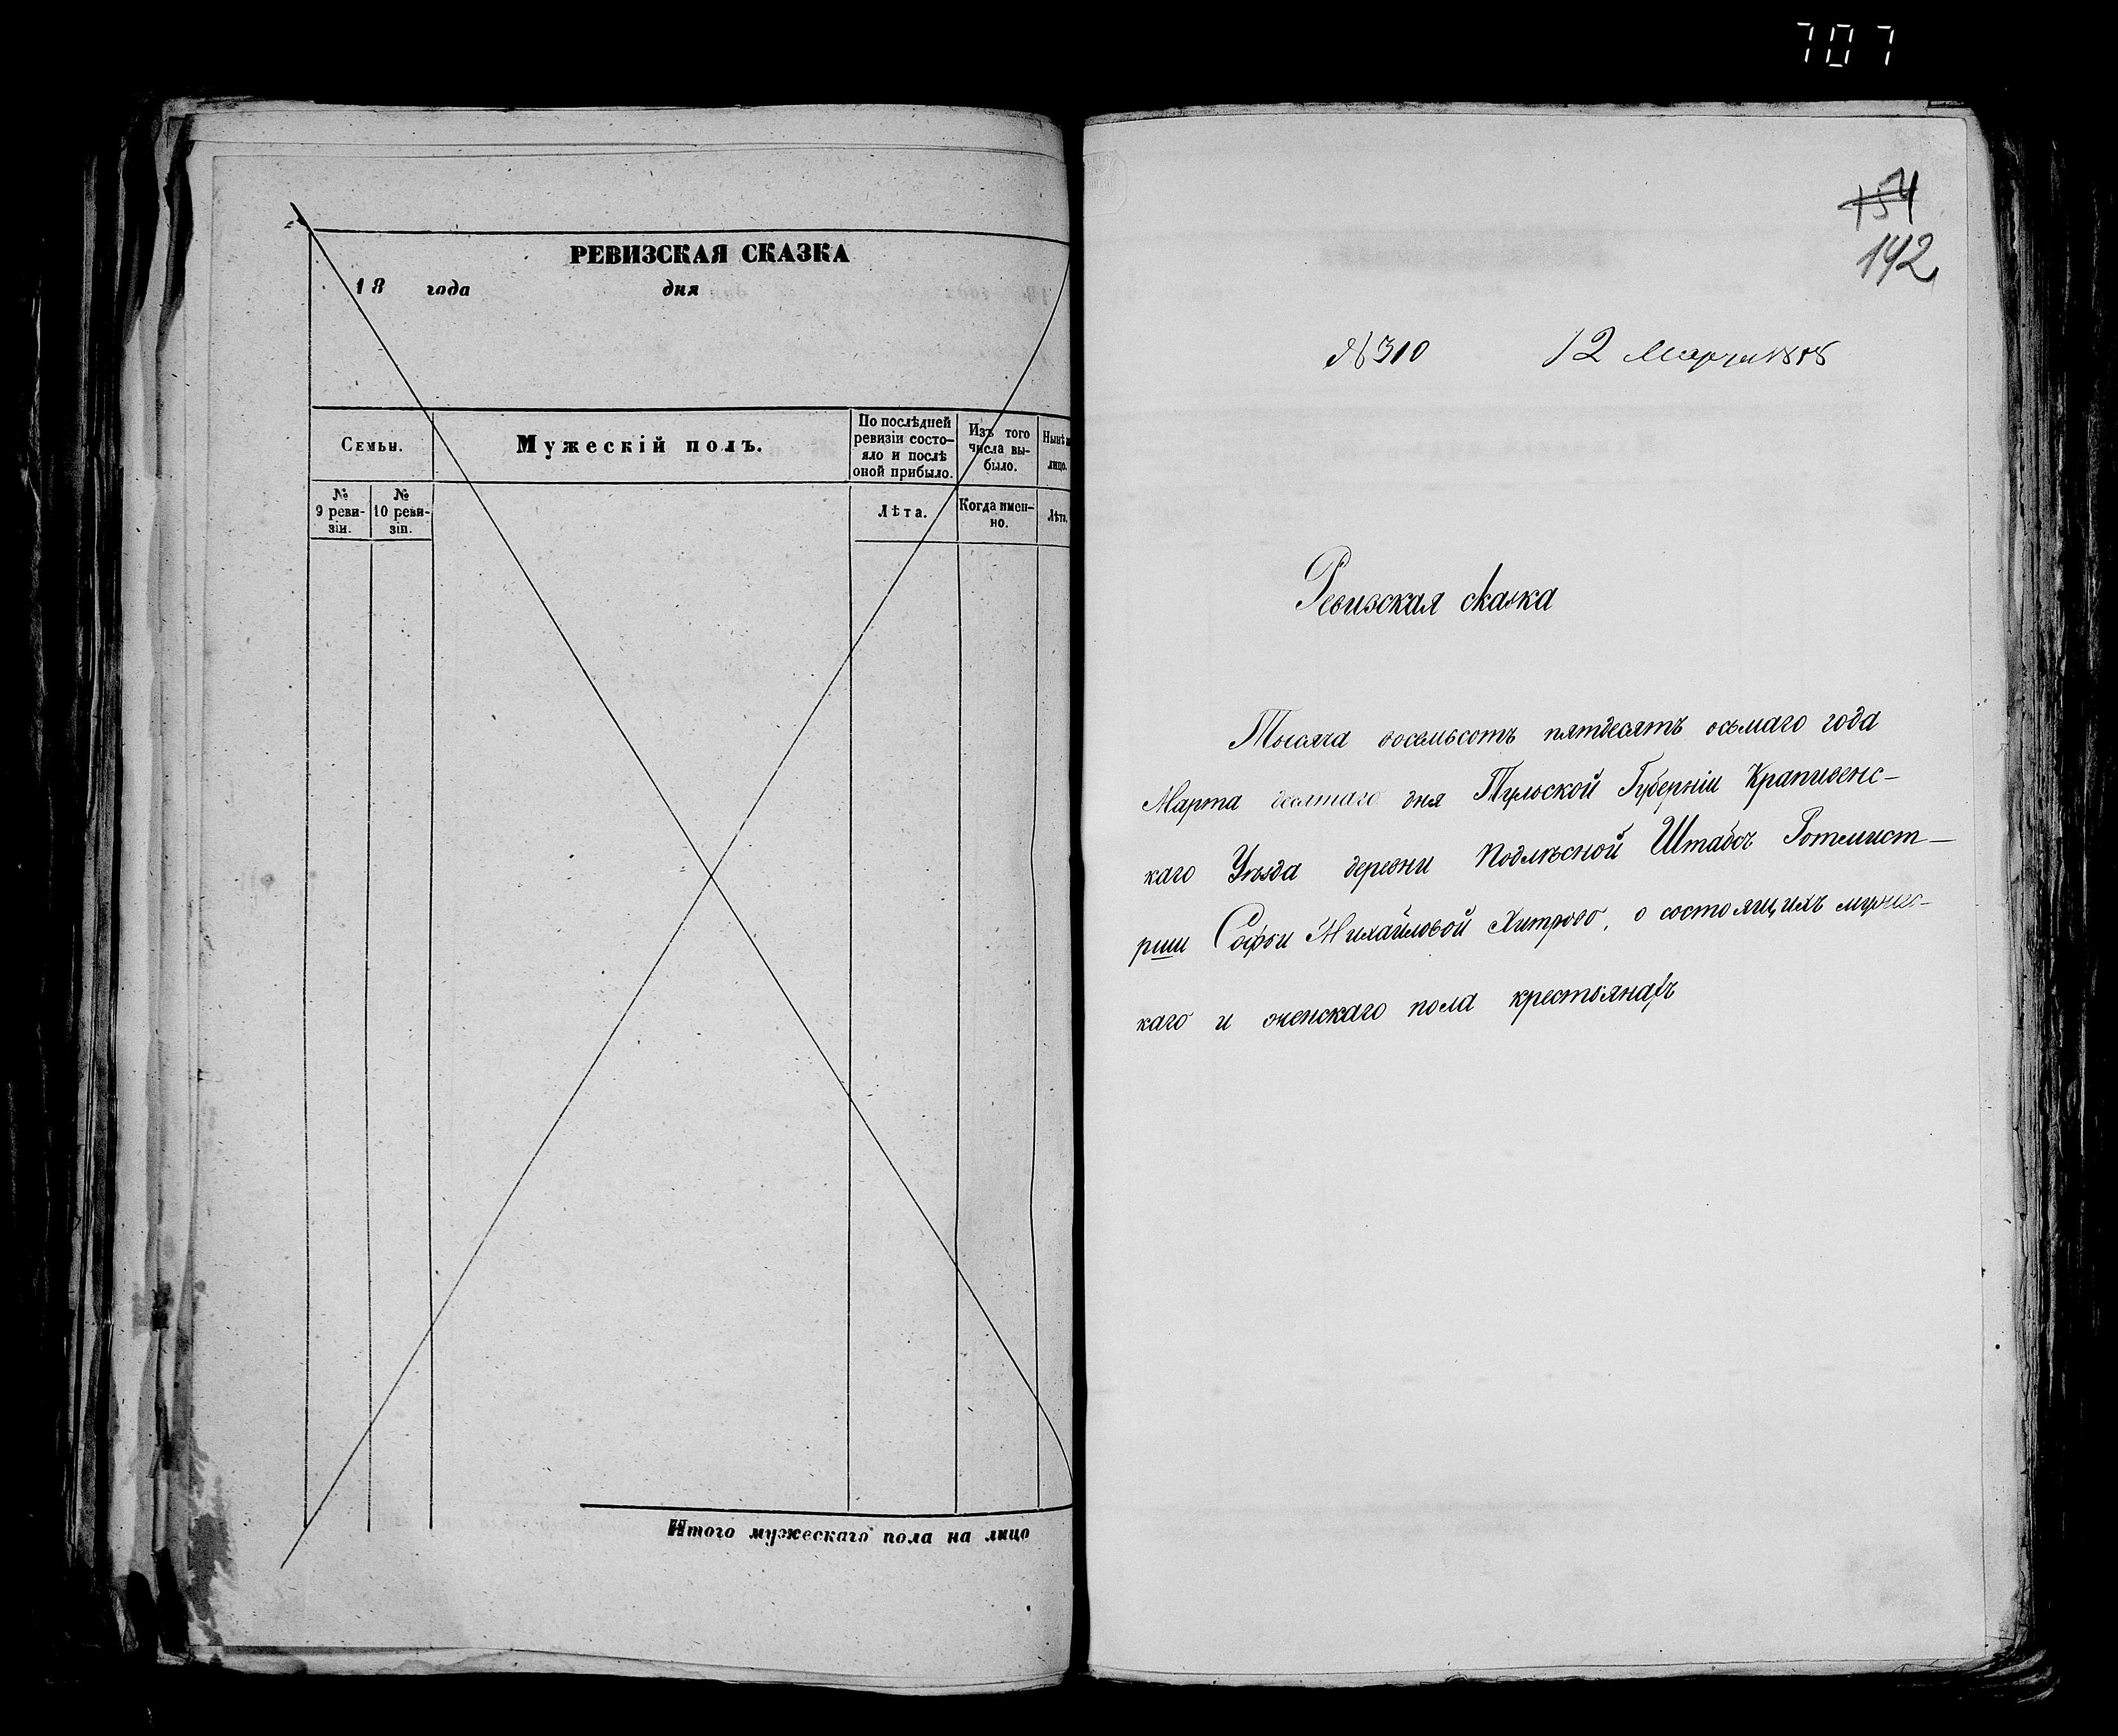 707
РЕВИЗСКАЯ СКАЗКА
18 года дня
Семьи.
Мужескій полъ.
По послѣдней
ревизіи состо-
яло и послѣ
оной прибыло.
Изъ того
числа вы-
было.
Нынѣ
лицо.
№
9 реви-
зіи.
№
10 реви-
зіи.
Лѣта.
Когда имен-
но.
Лѣта.
Итого мужескаго пола на лицо
154
142
№ 310 12 Марта 1858
Ревизская сказка
Тысяча восемьсотъ пятдесятъ осьмаго года
Марта десятаго дня Тульской Губерніи Крапивенс-
каго Уѣзда деревни Подлѣсной Штабсъ Ротмист-
рши Софьи Михайловой Хитрово, о состоящихъ мужес-
каго и женскаго пола крестьянахъ